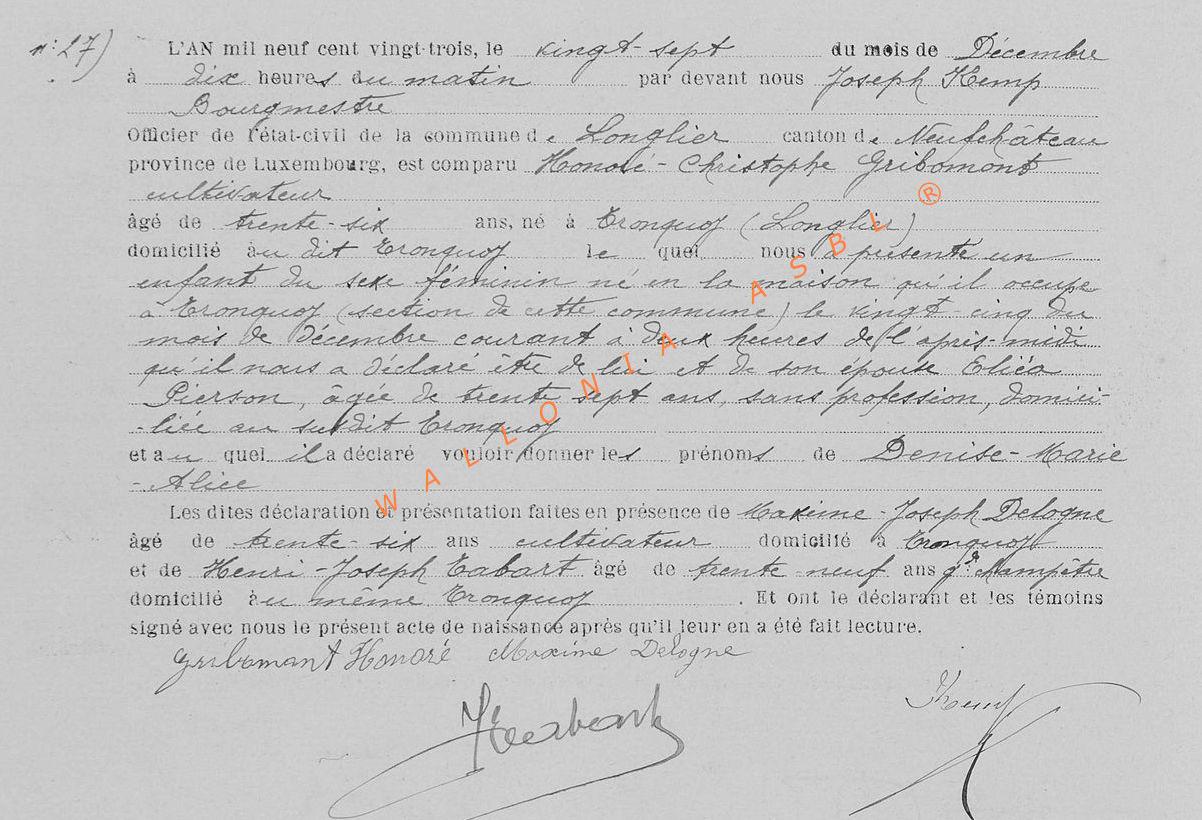 n: 27)
L'AN mil neuf cent vingt-trois, le vingt-sept du mois de Décembre
à dix heures du matin par devant nous Joseph Kemp
Bourgmestre
Officier de l'état-civil de la commune de Longlier canton de Neufchâteau
province de Luxembourg, est comparu Honoré-Christophe Gribomont
cultivateur
âgé de trente-six ans, né à Tronquoy (Longlier)
domicilié au dit Tronquoy le quel nous a présenté un
enfant du sexe féminin né en la maison qu'il occupe
à Tronquoy (section de cette commune) le vingt-cinq du
mois de Décembre courant à deux heures de l'après-midi
qu'il nous a déclaré être de lui et de son épouse Eliéa
Pierson, âgée de trente sept ans, sans profession, domici-
-liée au susdit Tronquoy
et au quel il a déclaré vouloir donner les prénoms de Denise-Marie
-Alice
Les dites déclaration et présentation faites en présence de Maxime-Joseph Delogne
âgé de trente-six ans cultivateur domicilié à Tronquoy
et de Henri-Joseph Tabart âgé de trente-neuf ans g.de champêtre
domicilié au même Tronquoy. Et ont le déclarant et les témoins
signé avec nous le présent acte de naissance après qu'il leur en a été fait lecture.
Gribomont Honoré Maxime Delogne
Kemp
WALLONIA ASBL ®